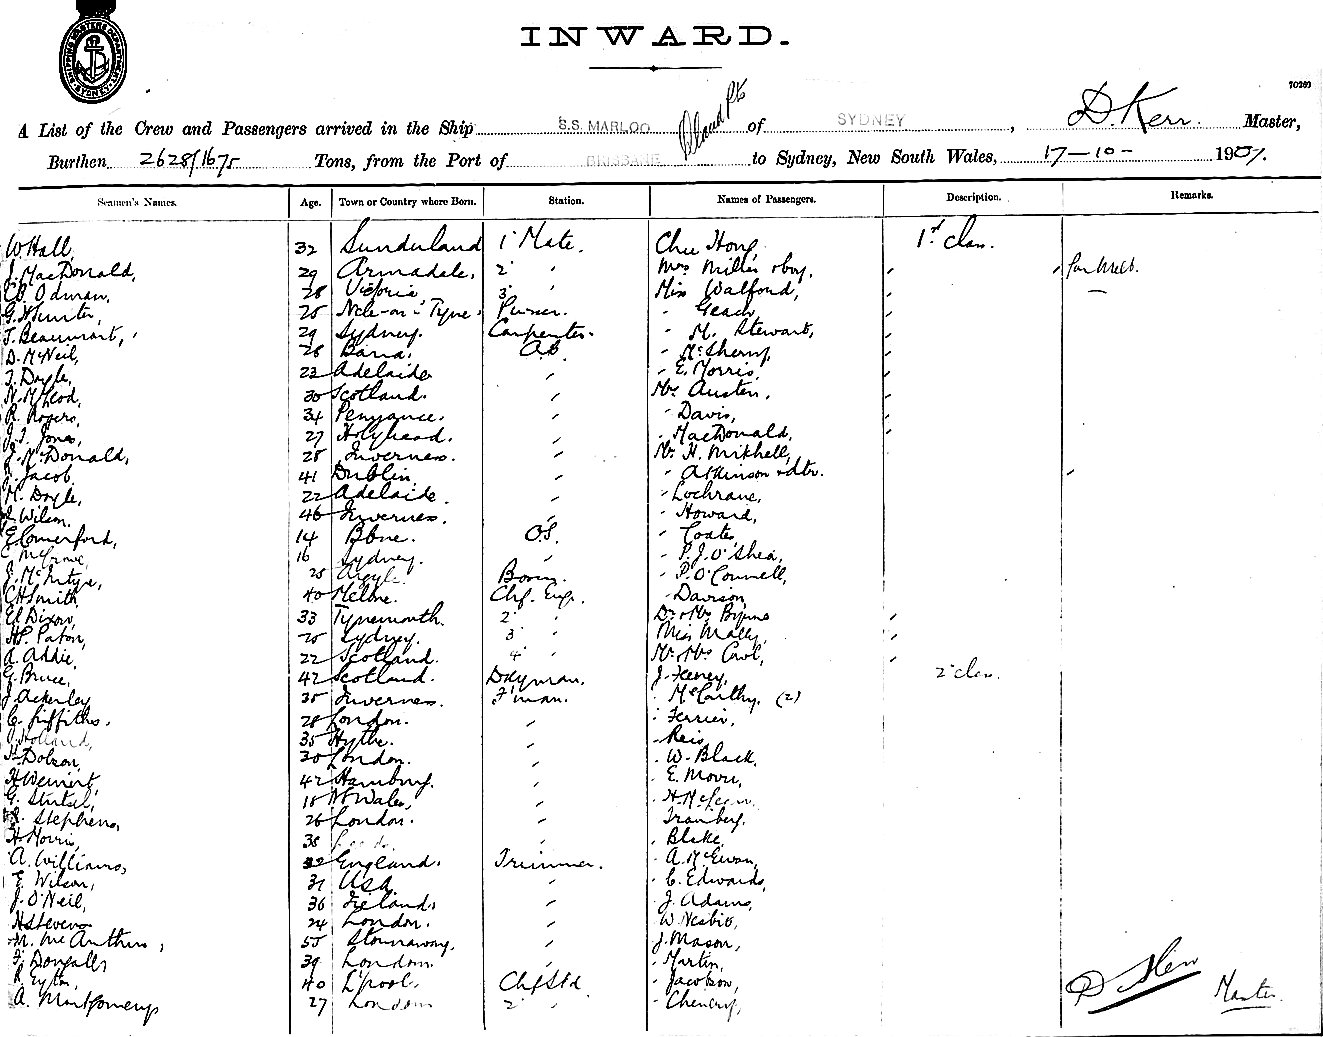 INWARD.
70269
A List of the Crew and Passengers arrived in the Ship S.S. MARLOO of SYDNEY, D. Kerr. Master,
Burthen 2628/1675 Tons, from the Port of BRISBANE to Sydney, New South Wales, 17-10- 1907.
Seamen's Names. Age. Town or Country where Born. Station. Names of Passengers. Description. Remarks.
W Hall, 32 Sunderland 1' Mate. Chee Hong 1st clas.
J. MacDonald, 29 Armadale, 2' " Mrs Millis & boy, " " for Melb.
Odman, 28 Victoria, 3' " Miss Walford, "
G. Hunter, 25 Ncle-on-Tyne. Purser. " Geach, "
T. Beaumont, 29 Sydney. Carpenter. " M. Stewart, "
D. McNeil, 28 Barra. A.B. " McSherry, "
T. Doyle, 22 Adelaide " " E. Morris, "
N. McLeod, 30 Scotland. " Mrs Austen, "
R. Rogers, 34 Penzance. " " Davis, "
J. T. Jones, 27 Holyhead. " " MacDonald, "
J. McDonald, 28 Inverness. " Mr H. Mitchell,
Jacob, 41 Dublin, " " Atkinson & dtr. "
M. Doyle, 22 Adelaide. " " Lochrane,
Wilson, 46 Inverness. " " Howard,
E Comerford, 14 Bbne. O.S. " Coates,
16 Sydney. " " P. J. O'Shea,
J. McIntyre, 25 Argyle. Bosun. " P. O'Connell,
C H Smith, 40 Melbne. Chf. Engr. " Davison
Ed Dixon, 33 Tynemouth. 2' " Dr & Mrs Byrne "
H. Paton, 25 Sydney. 3' " Miss Mally, "
A. Addie, 22 Scotland. 4' " Mr & Mrs Carol, "
G. Bruce, 42 Scotland. Dkyman. J. Feeney, 2' clas.
J Ackerley 35 Inverness. F'man. " McCarthy. (2)
G. Griffiths. 28 London. " " Ferrier,
Holland, 35 Hythe. " " Reis
H Dobson, 30 London. " " W. Black,
H Weinert, 42 Hamburg. " " E. Moore,
G. 18 N. Wales, " "
Stephens, 26 London. "
H Morris, 38 " " Blake,
A. Williams, 32 England. Trimmer. " A. McEwan,
E. Wilson, 31 USA. " " C. Edwards,
J. O'Neil, 36 Ireland. " J. Adams,
H Stevens 24 London. " W Nesbit,
M. McArthur, 55 Stornaway. " J. Mason,
F. Dougalls 39 London. " " Martin, D Kerr
R. Eyton, 40 L'pool. Chf Std " Jacobson, Master.
A. Montgomery 27 London 2' " Chenery,